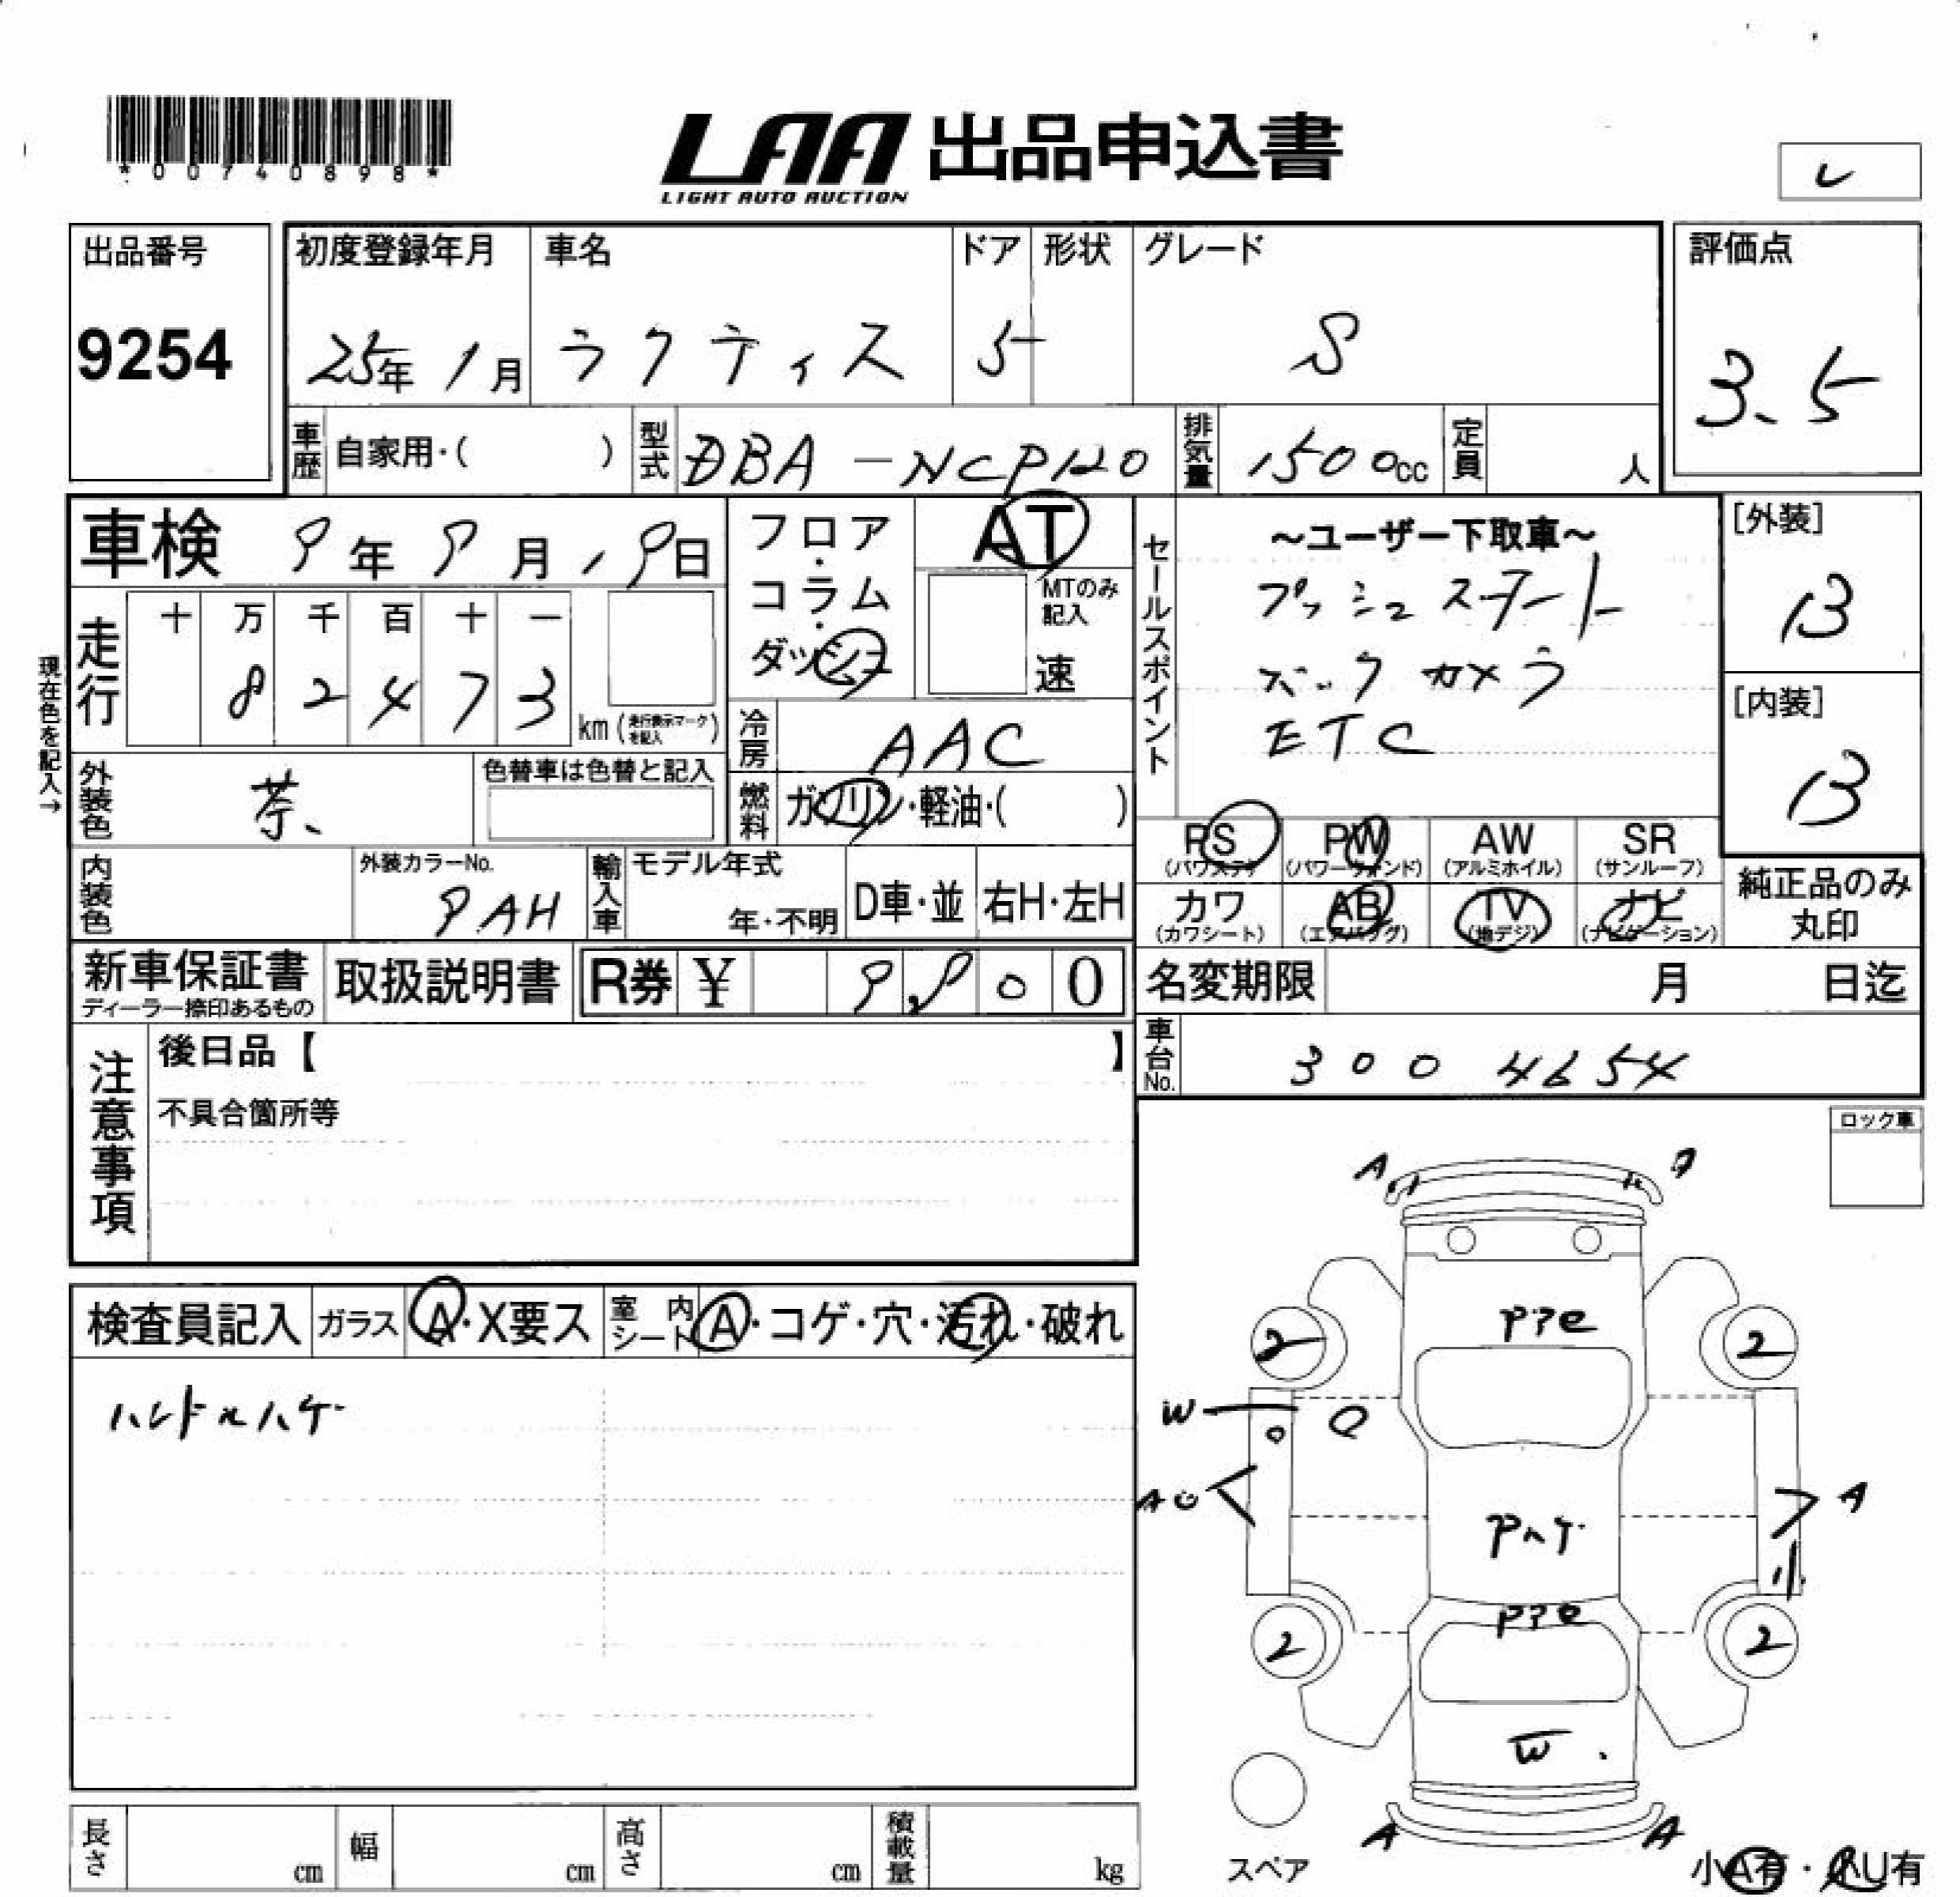 *00740898*
LAA 出品申込書
LIGHT AUTO AUCTION
レ
出品番号
9254
初度登録年月
25年 1月
車名
ラクティス
ドア
5
形状
グレード
S
評価点
3.5
車歴 自家用・( )
型式 DBA-NCP120
排気量 1500cc
定員 人
車検 9年 9月 19日
現在色を記入→
走行
十 万 千 百 十 一
8 2 4 7 3
km (走行表示マークを記入)
フロア・コラム・ダッシュ
AT
MTのみ記入
速
冷房 AAC
燃料 ガソリン・軽油・( )
セールスポイント
～ユーザー下取車～
プッシュスタート
バックカメラ
ETC
[外装]
B
[内装]
B
外装色 茶
色替車は色替と記入
内装色
外装カラーNo.
9AH
輸入車
モデル年式
年・不明
D車・並
右H・左H
PS (パワステ)
PW (パワーウィンド)
AW (アルミホイル)
SR (サンルーフ)
カワ (カワシート)
AB (エアバッグ)
TV (地デジ)
ナビ (ナビゲーション)
純正品のみ丸印
新車保証書
ディーラー捺印あるもの
取扱説明書
R券 ¥ 9,900
名変期限 月 日迄
車台No. 3004654
注意事項
後日品【 】
不具合箇所等
ロック車
検査員記入
ガラス A・X要ス
室内シート A・コゲ・穴・汚れ・破れ
ハンドルハゲ
A A
2 2
W
AU A
Pハゲ
2 2
W
A A
スペア
小A有・小U有
長さ cm
幅 cm
高さ cm
積載量 kg